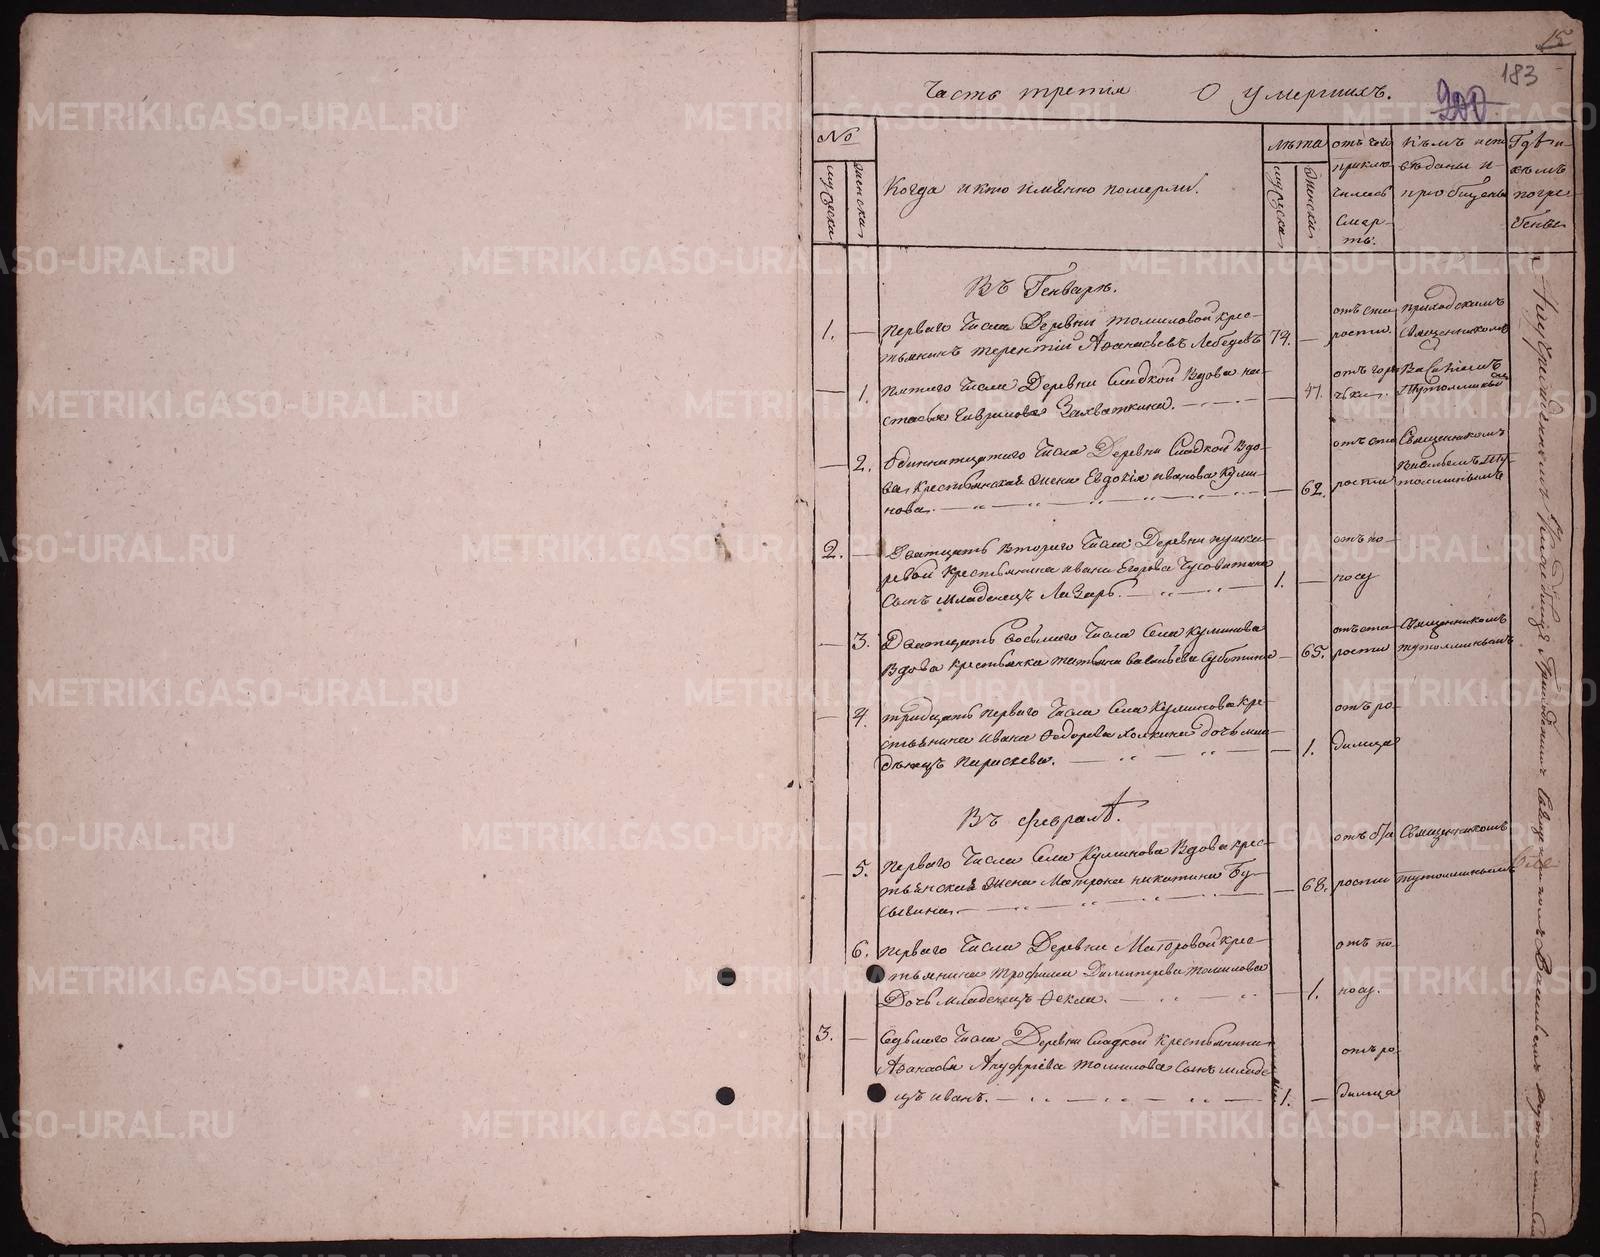 15
183
200
Часть третія О умершихъ.
№
мужеска
женска
Когда и кто именно померли.
лѣта
мужеска
женска
отъ чего
приклю-
чилась
смер-
ть.
Къмъ испо-
вѣданы и
пріобщены
Гдѣ и
кѣмъ
погре-
бены
Въ Генваре.
1. — Перваго Числа Деревни Томиловой крес-
тьянинъ терентій Аѳанасьевъ Лебедевъ 74. —
отъ ста-
рости.
приходскимъ
священникомъ
— 1. Пятаго Числа Деревни Сладкой Вдова на-
стасья Гаврилова Захваткина. — 47.
отъ горя-
чьки.
Василіемъ
— 2. Одиннатцатаго Числа Деревни Сладкой Вдо-
ва Крестьянская жена Евдокія иванова Кули-
нова. — 62.
отъ ста
рости
Священникомъ
Васильемъ
2. — Дватцать втораго Числа Деревни пушка-
ревой Крестьянина ивана Егорова Чусовитина
Сынъ младенецъ Лазарь. 1. —
отъ по-
носу
— 3. Дватцать Восьмаго Числа Села Куминова
Вдова крестьянка татьяна васильева Суботина — 65.
отъ ста
рости
священникомъ
— 4. тридцать перваго Числа Села Куминова кре-
стьянина ивана Ѳедорова Холкина дочь мла-
денецъ параскева. — 1.
отъ ро-
димца
Въ февралѣ.
— 5. перваго Числа Села Куминова Вдова крес-
тьянская жена Матрона никитина Бу-
сыгина. — 68.
отъ ста
рости
Священникомъ
6. перваго Числа Деревни Маторовой крес-
тьянина трофима Димитрева томилова
Дочь младенецъ Ѳекла. — 1.
отъ по-
носу.
3. — Седьмаго Числа Деревни Сладкой Крестьянина
Аѳанасья Ануфріева томилова сынъ младе-
нецъ иванъ. 1. —
отъ ро-
димца
METRIKI.GASO-URAL.RU